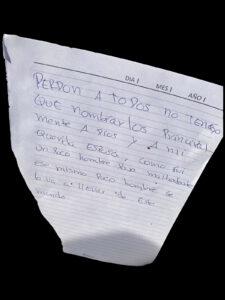 DIA / MES / AÑO /
PERDON A TODOS NO TENGO
QUE NOMBRARLOS PRINCIPAL
MENTE A DIOS y A MI
QUERIDA ESPOSA, COMO FUI
UN POCO HOMBRE
ESE MISMO POCO HOMBRE SE
LA VA A LLEVAR DE ESTE
MUNDO